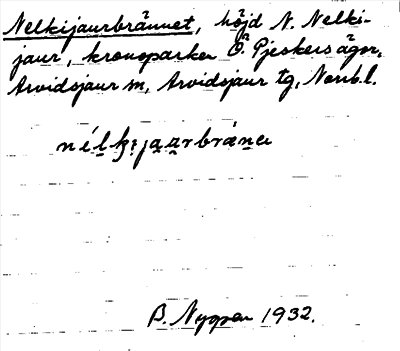 Nelkijaurbrännet, höjd N. Nelki-
jaur, kronoparken Ö. Pjeskers ägor,
Arvidsjaur sn, Arvidsjaur tg, Norrb. l.
nélkijaurbränа
B. Nygren 1932.